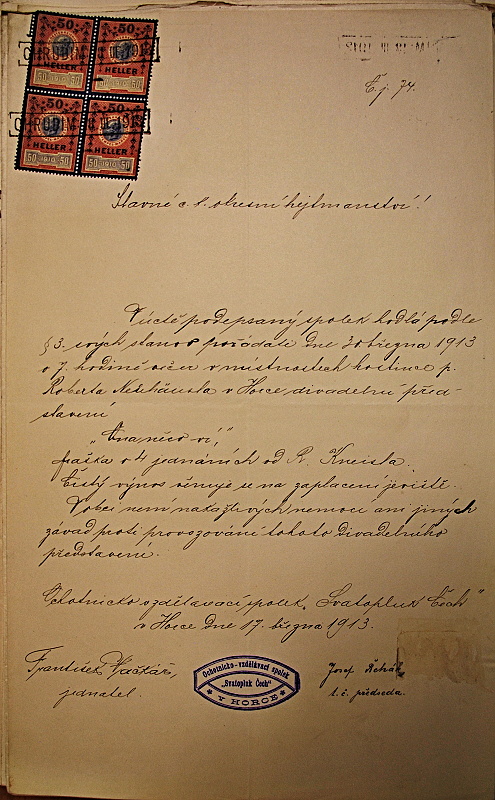 50 50
CHRUDIM
HELLER HELLER
50 1910 50 50 1910 50
50 50
CHRUDIM
HELLER HELLER
50 1910 50 50 1910 50
Č. j. 74.
Slavné c. k. okresní hejtmanství!
V úctě podepsaný spolek hodlá podle
§ 3. svých stanov pořádati dne 30 března 1913
o 7. hodině večer v místnostech hostince p.
Roberta v Horce divadelní před-
stavení
„Ona něco ví,"
fraška o 4 jednáních od R. Kneisla.
Čistý výnos věnuje se na zaplacení jeviště.
V obci není nakažlivých nemocí ani jiných
závad proti provozování tohoto divadelního
představení.
Ochotnicko vzdělávací spolek „Svatopluk Čech"
v Horce dne 17. března 1913.
František Vaškář,
jednatel.
Ochotnicko-vzdělávací spolek
„Svatopluk Čech"
V HORCE
Josef Řehák
t. č. předseda.